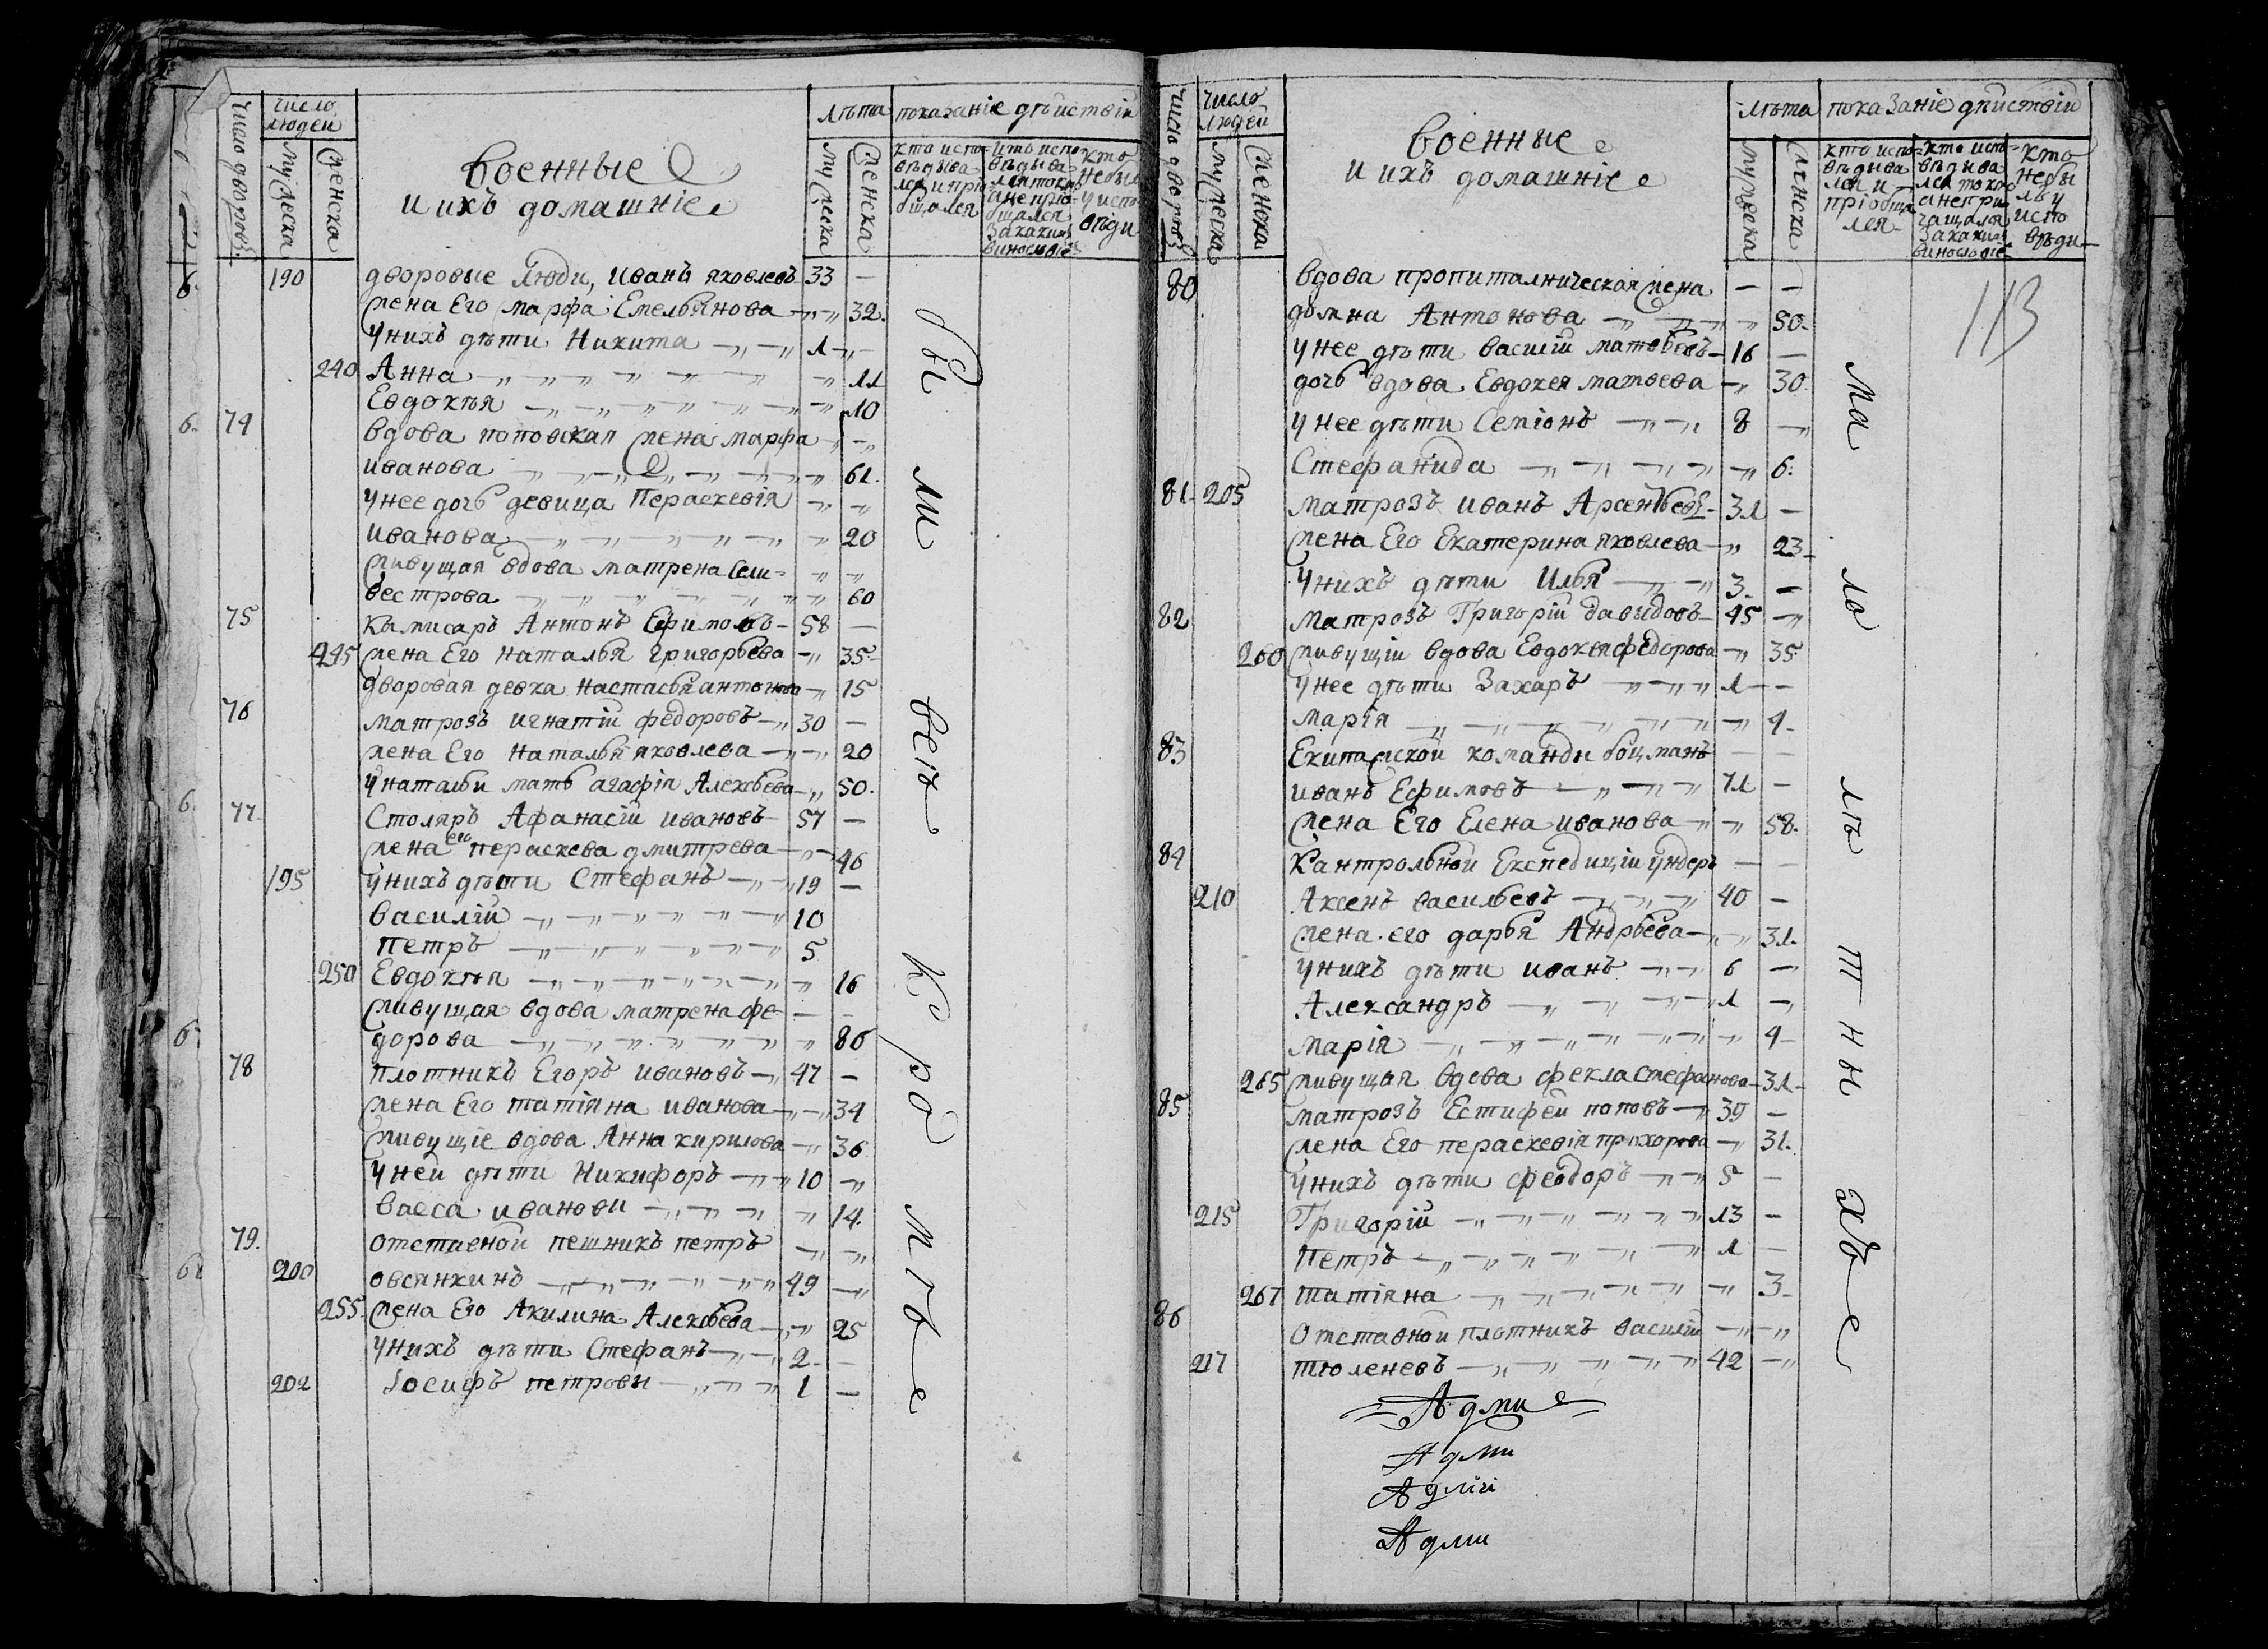 Число дворовъ
Число людей
Мужеска
Женска
военные
и ихъ домашніе
лѣта
показаніе дѣиствіи
Мужеска
Женска
кто испо-
вѣдыва-
лся и прі-
общался
кто испо-
вѣдыва-
лся токмо
а не прі-
общался
За какимъ
винословіе
Кто
небыл
у испо-
вѣди
190 дворовые люди, иванъ яковлевъ 33 —
жена Его марфа Емельянова 32.
у нихъ дѣти Никита 1
240 Анна 11
Евдокѣя 10
74 вдова поповская жена марфа
иванова 61.
у нее дочь девица Пераскевія
иванова 20
живущая вдова матрена Сели=
вестрова 60
75 камисаръ Антонъ Ефимовъ 58 —
245 жена Его наталья григорьева 35
дворовая девка настасья антонова 15
76 матрозъ игнатіи федоровъ 30 —
жена Его наталья яковлева 20
у натальи мать агафія Алексѣева 50.
77 Столяръ Афанасіи ивановъ 57 —
жена его пераскева дмитрева 46
195 у нихъ дѣти Стефанъ 19 —
василіи 10
петръ 5
250 Евдокѣя 16
живущая вдова матрена фе- — —
дорова 86
78 плотникъ Егоръ ивановъ 47 —
жена Его татіяна иванова 34
живущіе вдова Анна кирилова 36
у ней дѣти Никифоръ 10
васса иванови 14.
79. отставной пешникъ петръ
200 овсянкинъ 49
255 жена Его Акилина Алексѣева 25
у нихъ дѣти Стефанъ 2 —
202 Іосифъ петровы 1 —
Число дворовъ
Число людей
Мужеска
Женска
военные
и ихъ домашніе
лѣта
показаніе дѣиствіи
Мужеска
Женска
кто испо-
вѣдыва
лся и
пріобща
лся
кто испо-
вѣдыва
лся токмо
а непри
чащался
За какимъ
винословіе
Кто
небы
лъ у
испо
вѣди
113
80 вдова пропиталническая жена — —
домна Антонова 50
у нее дѣти василіи матвѣевъ 16 —
дочь вдова Евдокея матвева 30
у нее дѣти Семіонъ 8
Стефанида 6.
81 205 матрозъ иванъ Арсеньевъ 31 —
жена Его Екатерина яковлева 23
у нихъ дѣти Илья 3 —
82 матрозъ Григоріи давыдовъ 45
260 живущіи вдова Евдокея федорова 35
у нее дѣти Захаръ 1 —
марія 4
83 Екипажской команды боцманъ — —
иванъ Ефимовъ 71 —
жена Его Елена иванова 58.
84 Кантрольной Експедиціи ундеръ — —
210 Аксенъ васильевъ 40 —
жена его дарья Андрѣева 31.
у нихъ дѣти иванъ 6
Александръ 1
марія 4
265 живущая вдова фекла Стефанова 31
85 матрозъ Естифеи поповъ 39 —
жена Его пераскевія прохорова 31.
у нихъ дѣти Феодоръ 5 —
215 Григоріи 13 —
петръ 1 —
267 татіяна 3
86 отставной плотникъ василіи
217 тюленевъ 42
Адми
Адми
Адмі
Адми